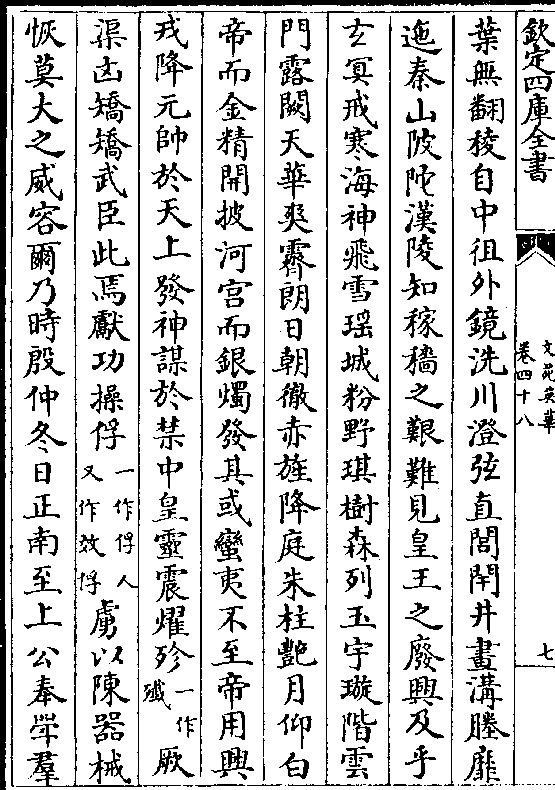 欽定四庫全書
文苑英華
卷四十八
七
葉無翻稜自中徂外鏡洗川澄弦直閭閈井畫溝塍靡
迤秦山陂陀漢陵知稼穡之艱難見皇王之廢興及乎
玄冥戒寒海神飛雪瑶城粉野琪樹森列玉宇璇階雲
門露闕天華爽霽朗日朝徹赤旌降庭朱柱艶月仰白
帝而金精開披河宮而銀燭發其或蠻夷不至帝用興
戎降元帥於天上發神謀於禁中皇靈震燿殄一作殲厥
渠凶矯矯武臣此焉獻功操俘一作俘人又作效俘虜以陳器械
恢莫大之威容爾乃時殷仲冬日正南至上公奉斝羣